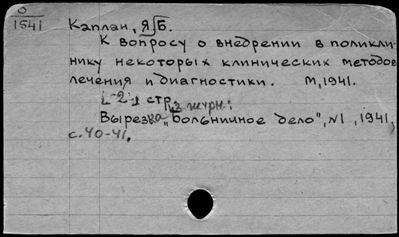 0
1541
Каплан, Я.Б.
К вопросу о внедрении в поликли-
нику некоторых клинических методов
лечения и диагностики. М, 1941.
[-2-] стр.
Вырезка з журн.: "Больничное дело", N1, 1941,
с. 40-41.